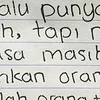 alu puny
h, tapi
sa masih
kan oran
lah orang